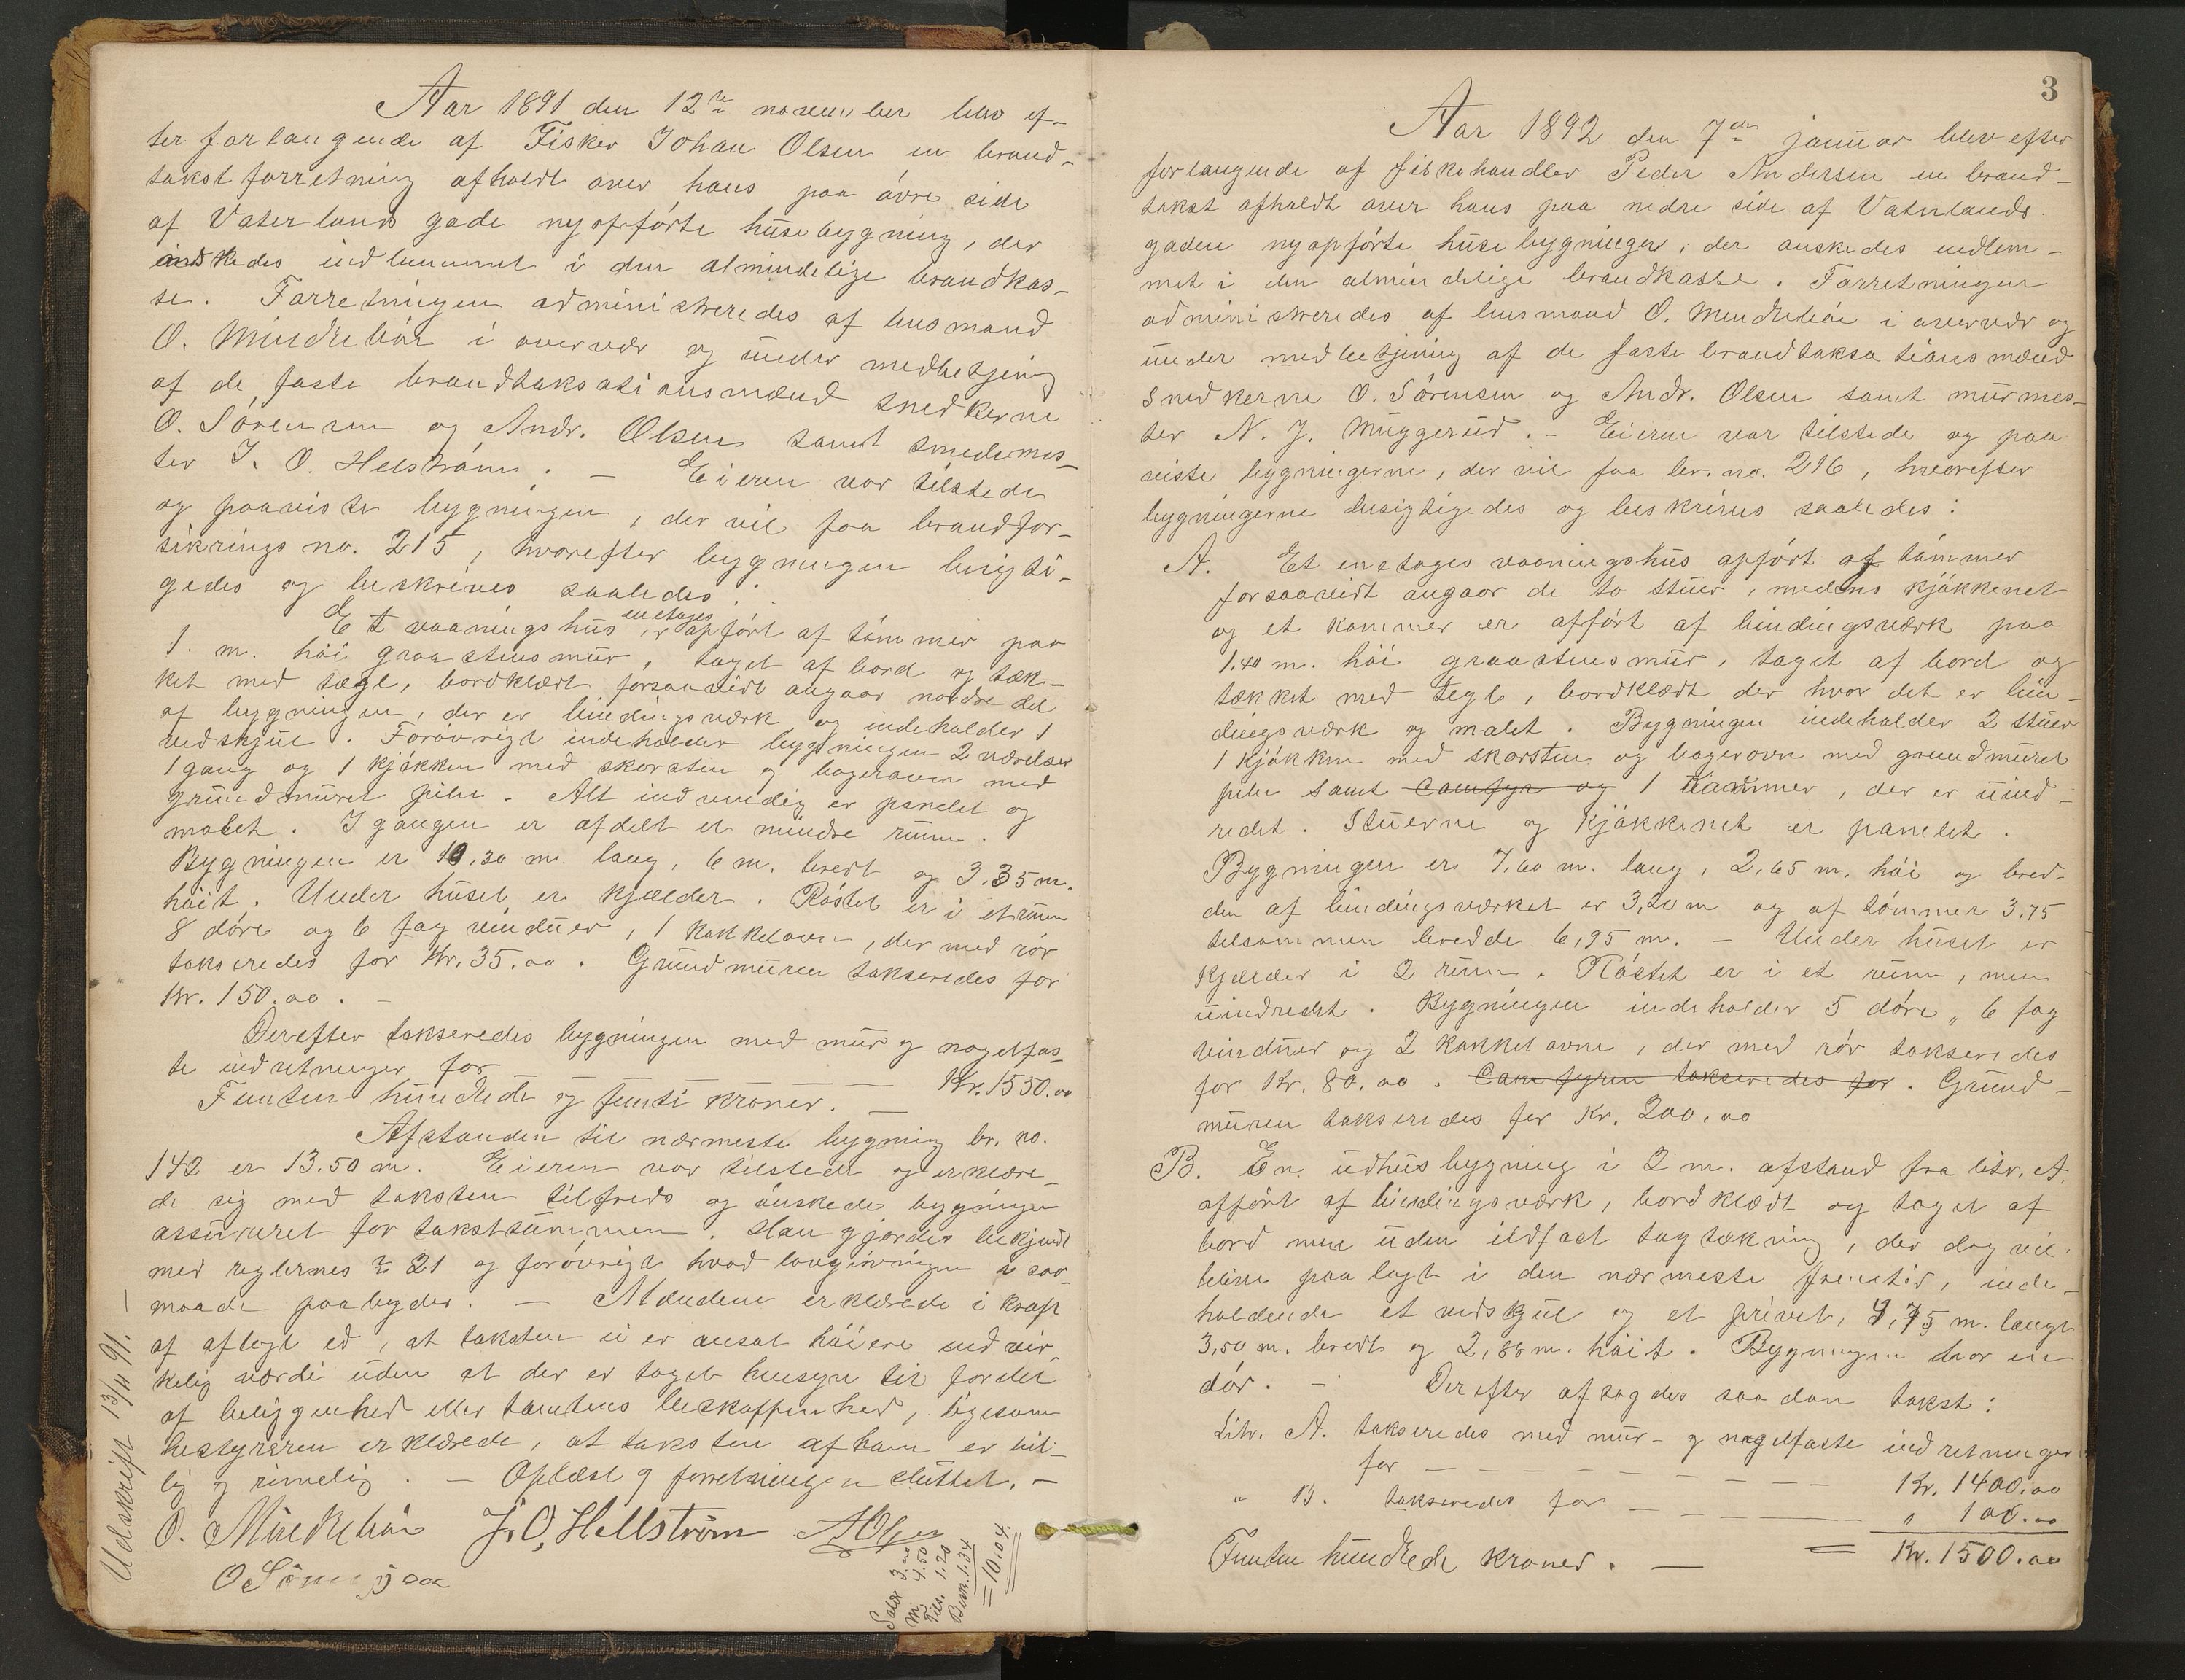 Aar 1891 den 12te november blev ef-
ter forlangende af Fisker Johan Olsen en brand-
takstforretning afholdt over hans paa övre side
af Vaterlands gade nyopförte husebygning, der
önskedes indlemmet i den almindelige brandkas-
se. Forretningen administreredes af lensmand
O. Mindreböe i overvær og under medbetjening
af de faste brandtaksationsmænd snedkerne
O. Sörensen og Andr. Olsen samt smedemes-
ter J. O. Hellström. — Eieren var tilstede
og paaviste bygningen, der vil faa brandfor-
sikrings no. 215, hvorefter bygningen besigti-
gedes og beskreves saaledes:
Et vaaningshus enetages er opfört af tömmer paa
1. m. höi graastensmur, taget af bord og tæk-
ket med tægl, bordklædt forsaavidt angaar nordre del
af bygningen, der er bindingsværk og indeholder 1
vedskjul. Forövrigt indeholder bygningen 2 værelser
1 gang og 1 kjökken med skorsten og bagerovn med
grundmuret pibe. Alt indvendig er panelet og
malet. I gangen er afdelt et mindre rum.
Bygningen er 10,30 m. lang, 6 m. bredt og 3.35 m.
höit. Under huset er kjælder. Röstet er i et rum
8 döre og 6 fag vinduer, 1 kakkelovn, der med rör
takseredes for Kr. 35.00. Grundmuren takseredes for
Kr. 150.00. —
Derefter takseredes bygningen med mur og nagelfas-
te indretninger for — — — Kr. 1550.00
Femten hundrede og femti kroner. —
Afstanden til nærmeste bygning br. no.
142 er 13.50 m. Eieren var tilstede og erklære-
de sig med taksten tilfreds og önskede bygningen
assureret for takstsummen. Han gjordes bekjendt
med reglernes § 21 og forövrigt hvad lovgivningen i saa-
maade paabyder. — Mændene erklærede i kraft
af aflagt ed, at taksten ei er ansat höiere end vir-
kelig værdi uden at der er taget hensyn til fordel
af beliggenhed eller tomtens beskaffenhed, ligesom
bestyreren erklærede, at taksten af ham er bil-
lig og rimelig. — Oplæst og forretningen sluttet. —
O. Mindreböe J. O. Hellström AOlsen
O Sörensen
Udskrift 13/11 91. —
Salær 3.00
m. 4.50
Tils. 1.20
Besk. 1.34
= 10.04.
3
Aar 1892 den 7de januar blev efter
forlangende af fiskehandler Peder Andersen en brand-
takst afholdt over hans paa nedre side af Vaterlands-
gaden nyopförte husebygninger, der önskedes indlem-
met i den almindelige brandkasse. Forretningen
administreredes af lensmand O. Mindreböe i overvær og
under medbetjening af de faste brandtaksationsmænd
snedkerne O. Sörensen og Andr. Olsen samt murmes-
ter N. J. Muggerud. — Eieren var tilstede og paa
viste bygningerne, der vil faa br. no. 216, hvorefter
bygningerne besigtigedes og beskreves saaledes:
A. Et enetages vaaningshus opfört af tömmer
forsaavidt angaar de to stuer, medens kjökkenet
og et kammer er opfört af bindingsværk paa
1.40 m. höi graastensmur, taget af bord og
tækket med tegl, bordklædt der hvor det er bin-
dingsværk og malet. Bygningen indeholder 2 stuer
1 kjökken med skorsten og bagerovn med grundmuret
pibe samt Comfyr og 1 Kammer, der er uind-
redet. Stuerne og Kjökkenet er panelet.
Bygningen er 7,60 m. lang, 2,65 m. höi og bred-
den af bindingsværket er 3,20 m og af tömmer 3,75
tilsammen bredde 6,95 m. — Under huset er
Kjælder i 2 rum. Röstet er i et rum, men
uindredet. Bygningen indeholder 5 döre, 6 fag
vinduer og 2 kakkelovne, der med rör takseredes
for Kr. 80,00. Comfyren takseredes for. Grund-
muren takseredes for Kr. 200.00
B. En udhusbygning i 2 m. afstand fra litr. A.
opfört af bindingsværk, bordklædt og taget af
bord men uden ildfast tagtækning, der dog vil
blive paalagt i den nærmeste fremtid, inde-
holdende et vedskjul og et privet, 4,75 m. langt
3,50 m. bredt og 2,88 m. höit. Bygningen har en
dör. — Derefter afsagdes saadan takst:
Litr. A. takseredes med mur- og nagelfaste indretninger
for — — — — — Kr. 1400.00
" B. takseredes for — — — " 100.00
Femten hundrede kroner. — = Kr. 1500.00